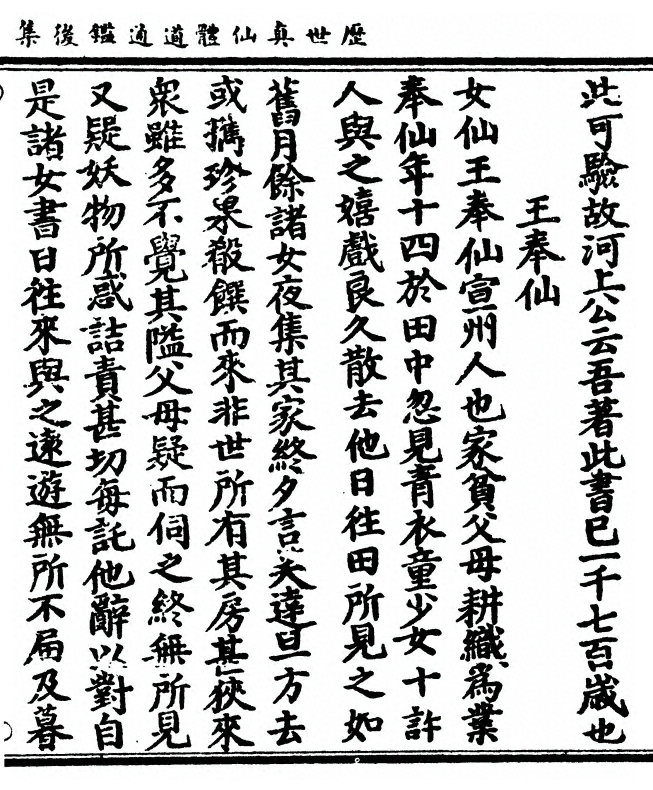 歷世真仙體道通鑑後集
此可驗故河上公云吾著此書巳一千七百歲也
王奉仙
女仙王奉仙宣州人也家貧父母耕織為業
奉仙年十四於田中忽見青衣童少女十許
人與之嬉戲良久散去他日往田所見之如
舊月餘諸女夜集其家終夕言笑達旦方去
或攜珍果殽饌而來非世所有其房甚狹來
衆雖多不覺其隘父母疑而伺之終無所見
又疑妖物所惑詰責甚切每託他辭以對自
是諸女書日往來與之遠遊無所不屆及暮